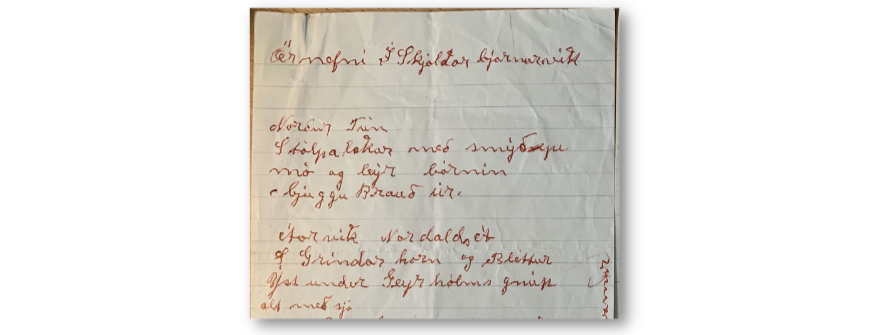 Örnefni Í Skjoldar bjarnarvik
Norður Tún
Stólpa lækar með smýðasu
mó og leyr börnin
bjuggu Brauð úr.
Norðaldset
Í Grindar horn og Blettur
Yst under Geyrhólms gnúp
alt með sjó